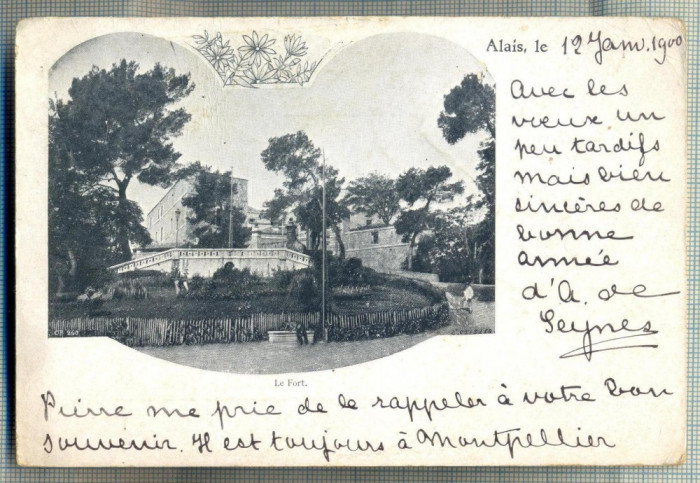 Alais, le 12 Janv. 1900
Avec les
vœux un
peu tardifs
mais bien
sincères de
bonne
année
d'A. de
Seynes
Le Fort.
Pierre me prie de le rappeler à votre bon
souvenir. Il est toujours à Montpellier